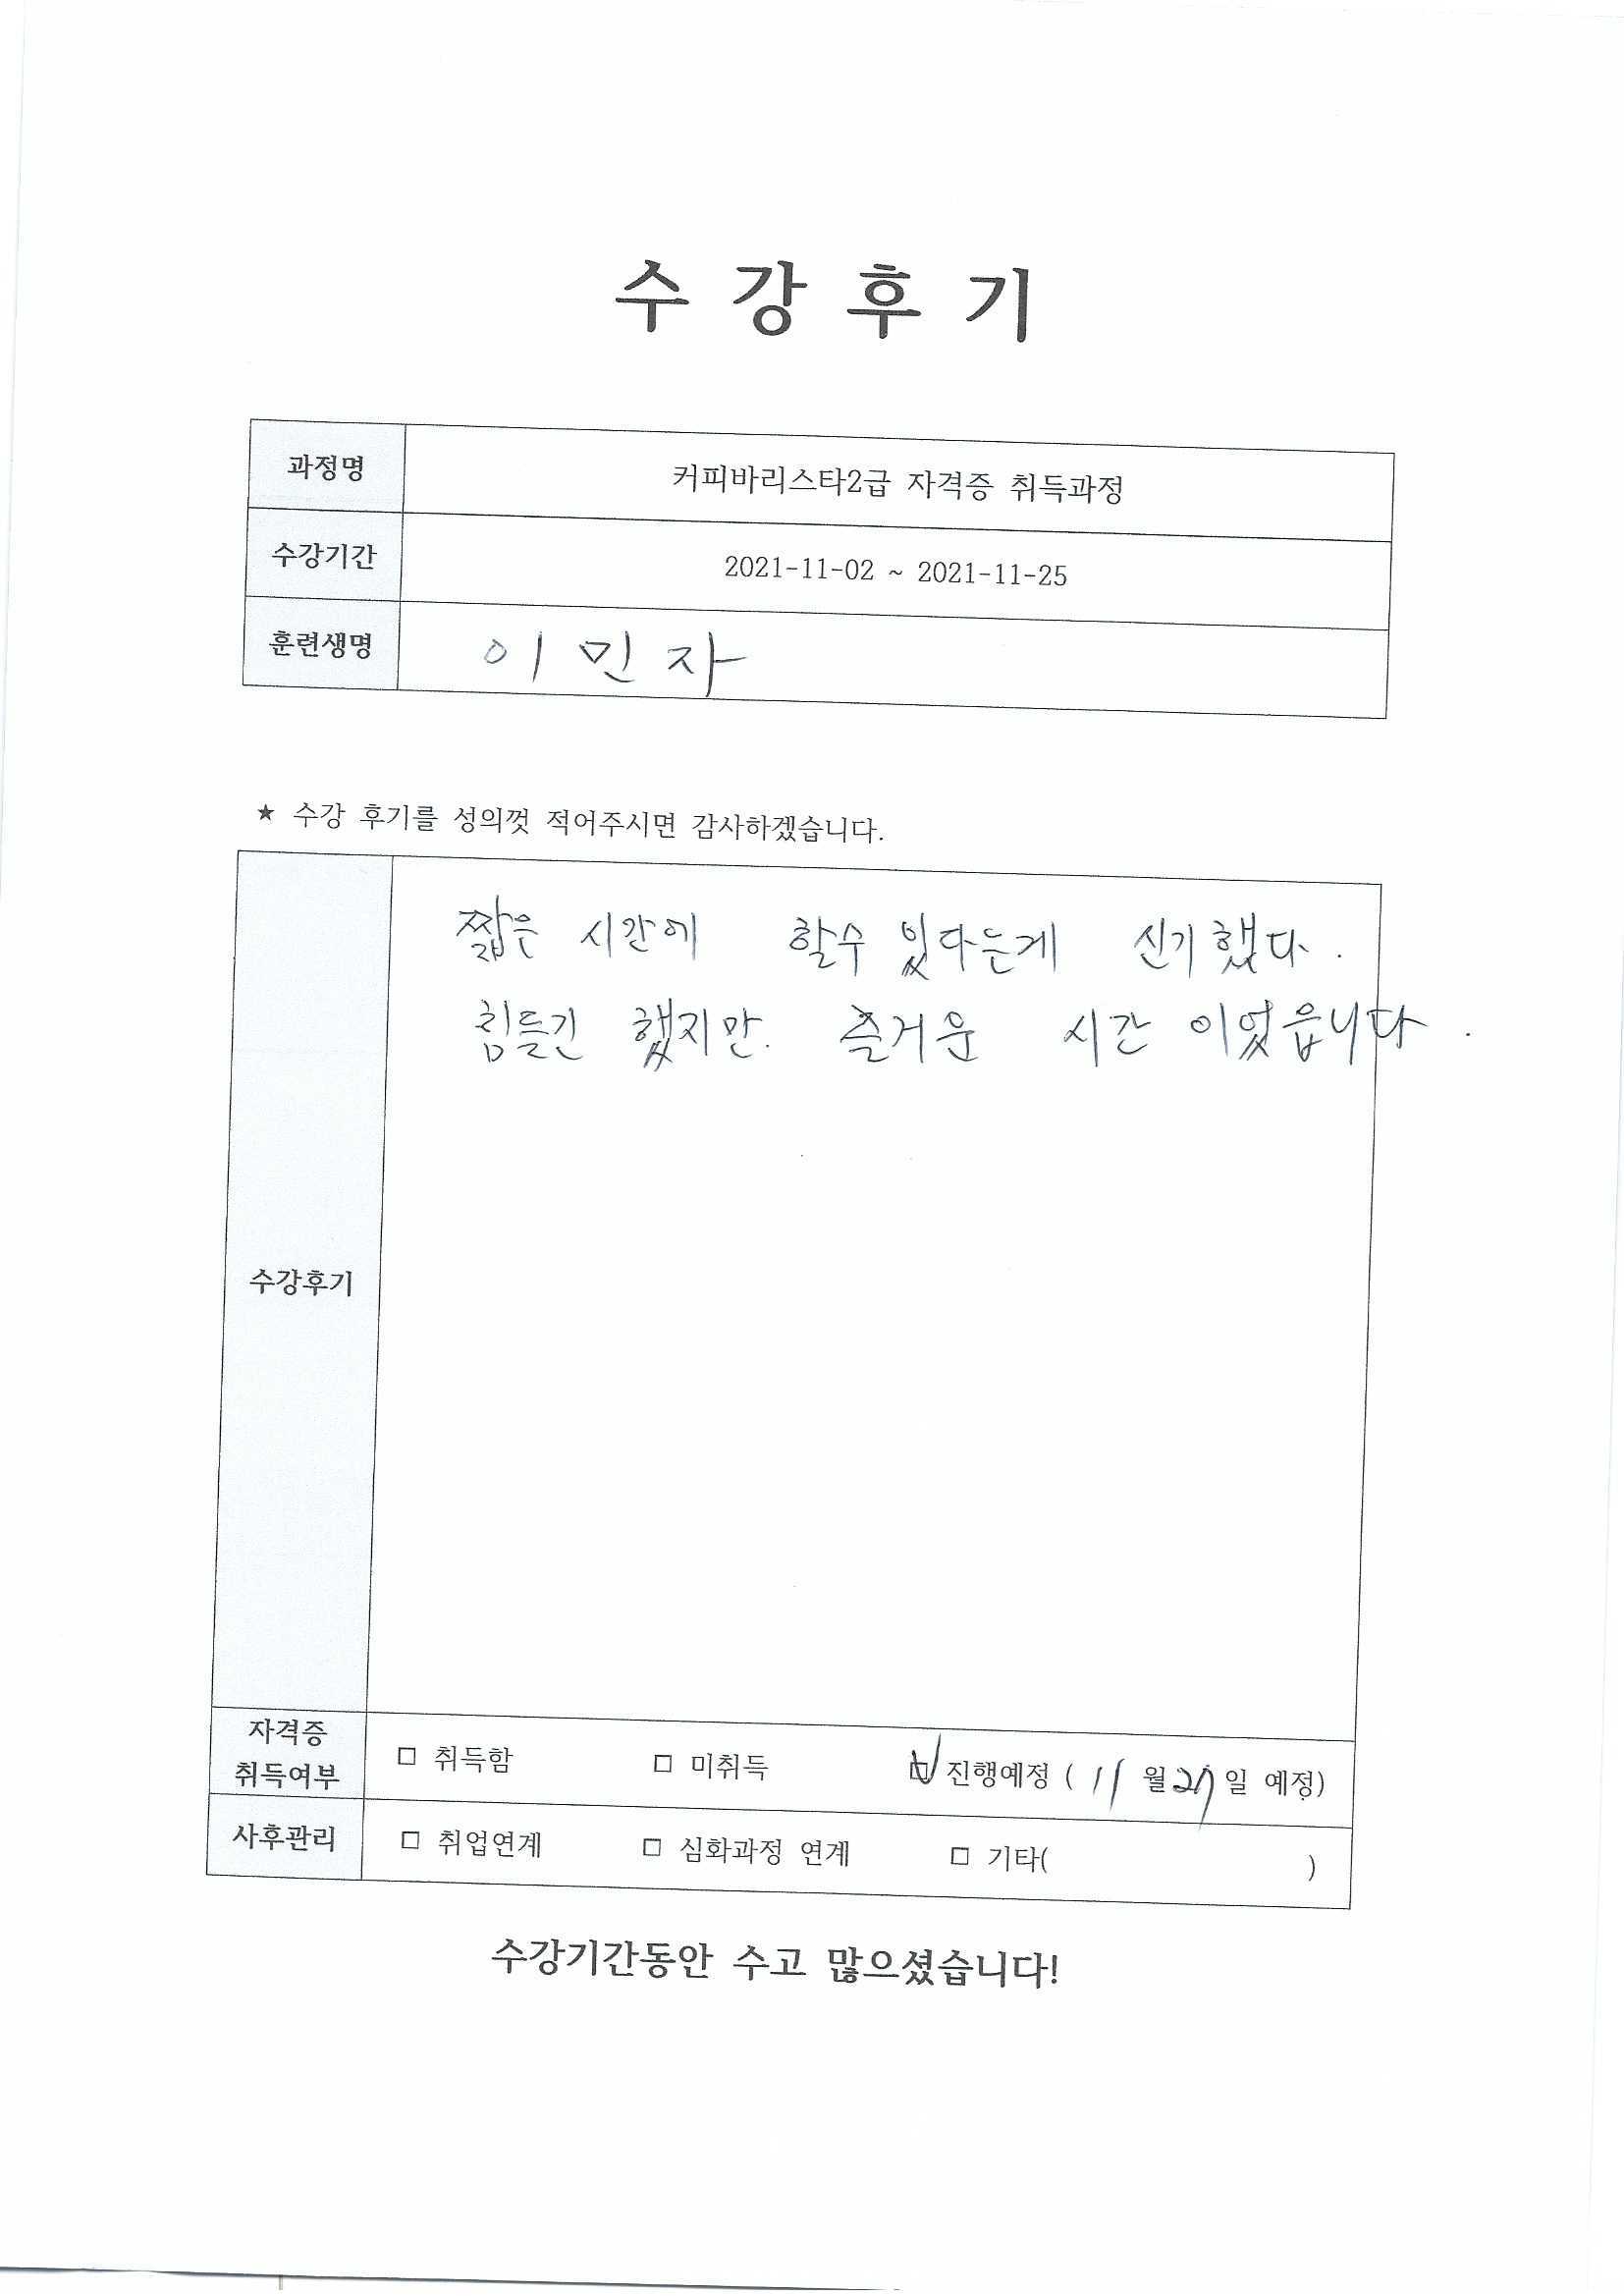 수 강 후 기
과정명 커피바리스타2급 자격증 취득과정
수강기간 2021-11-02 ~ 2021-11-25
훈련생명 이 민 자
★ 수강 후기를 성의껏 적어주시면 감사하겠습니다.
짧은 시간에 할수 있다는게 신기했다.
힘들긴 했지만. 즐거운 시간 이었읍니다.
수강후기
자격증
취득여부 □ 취득함 □ 미취득 ☑ 진행예정 ( 11 월 27 일 예정)
사후관리 □ 취업연계 □ 심화과정 연계 □ 기타( )
수강기간동안 수고 많으셨습니다!